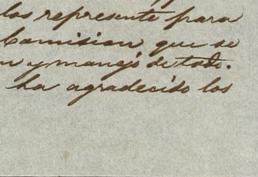 los represente para
Comision que se
n y manejo de todo.
ha agradecido los